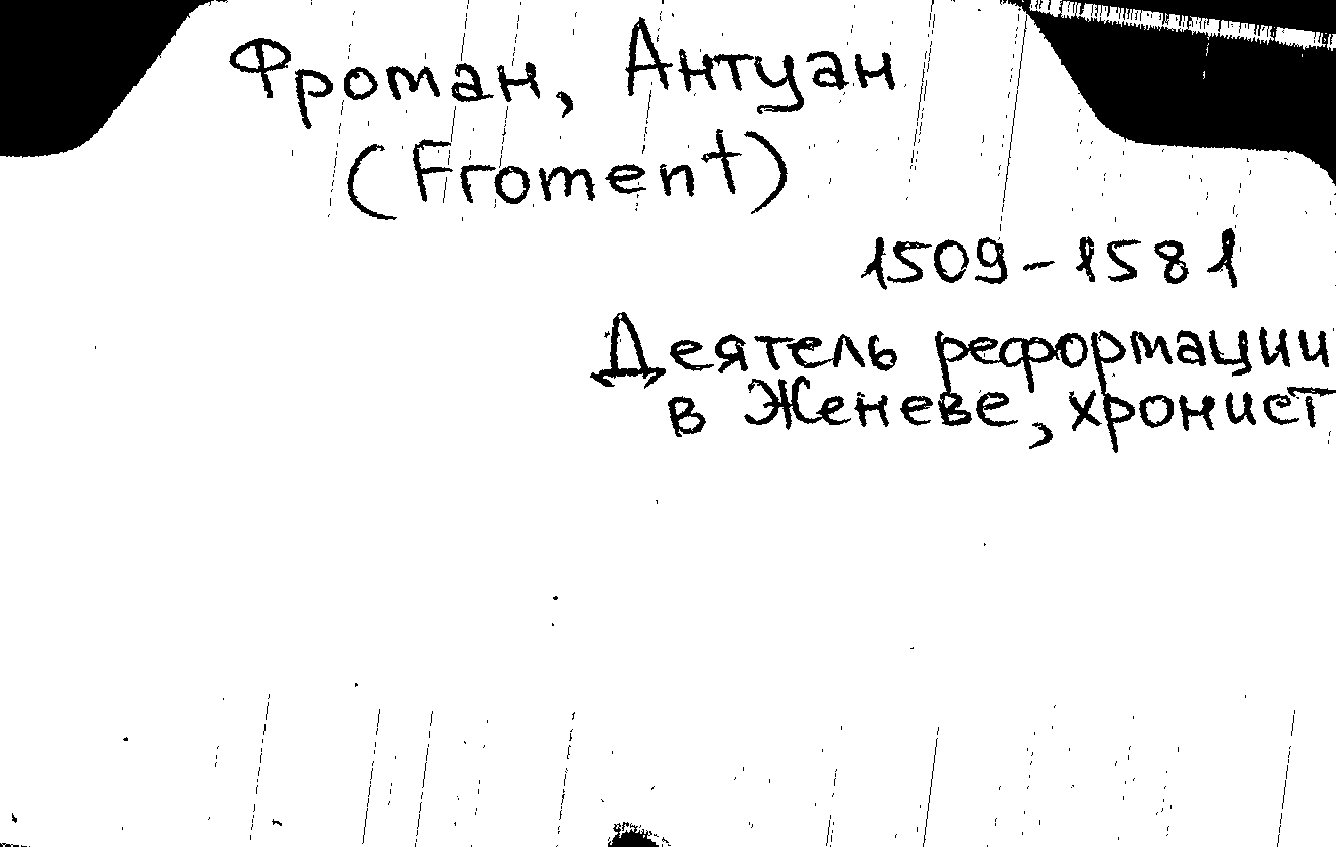 Фроман, Антуан
(Froment)
1509-1581
Деятель реформации
в Женеве, хронист